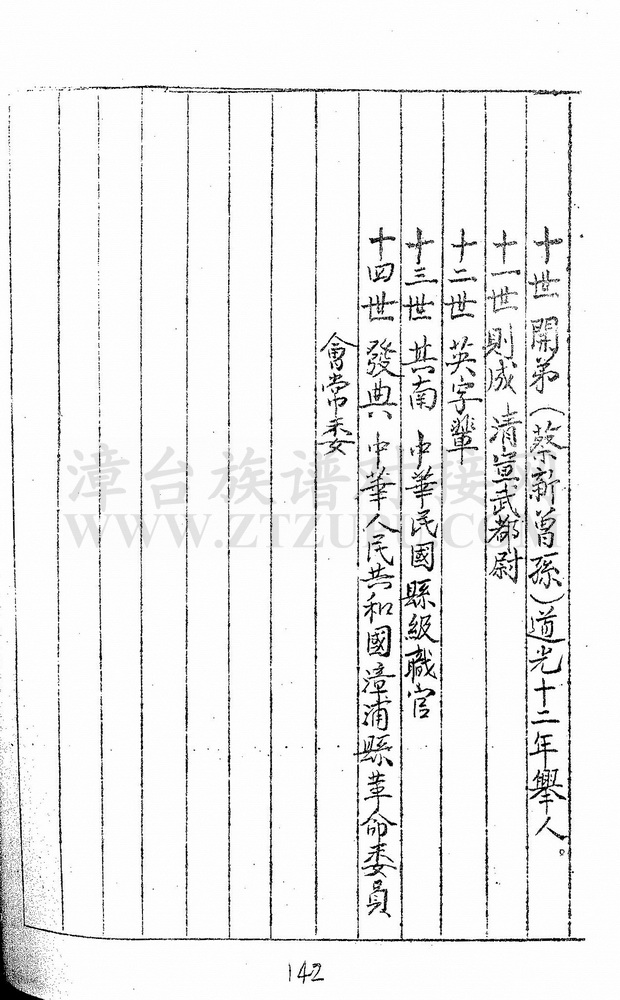 十世 開弟（蔡新曾孫）道光十二年舉人。
十一世 則成 清宣武都尉
十二世 英字輩
十三世 其南 中華民國縣級職官
十四世 發典 中華人民共和國漳浦縣革命委員
會常委
漳台族谱对接
WWW.ZTZUPU.COM
142